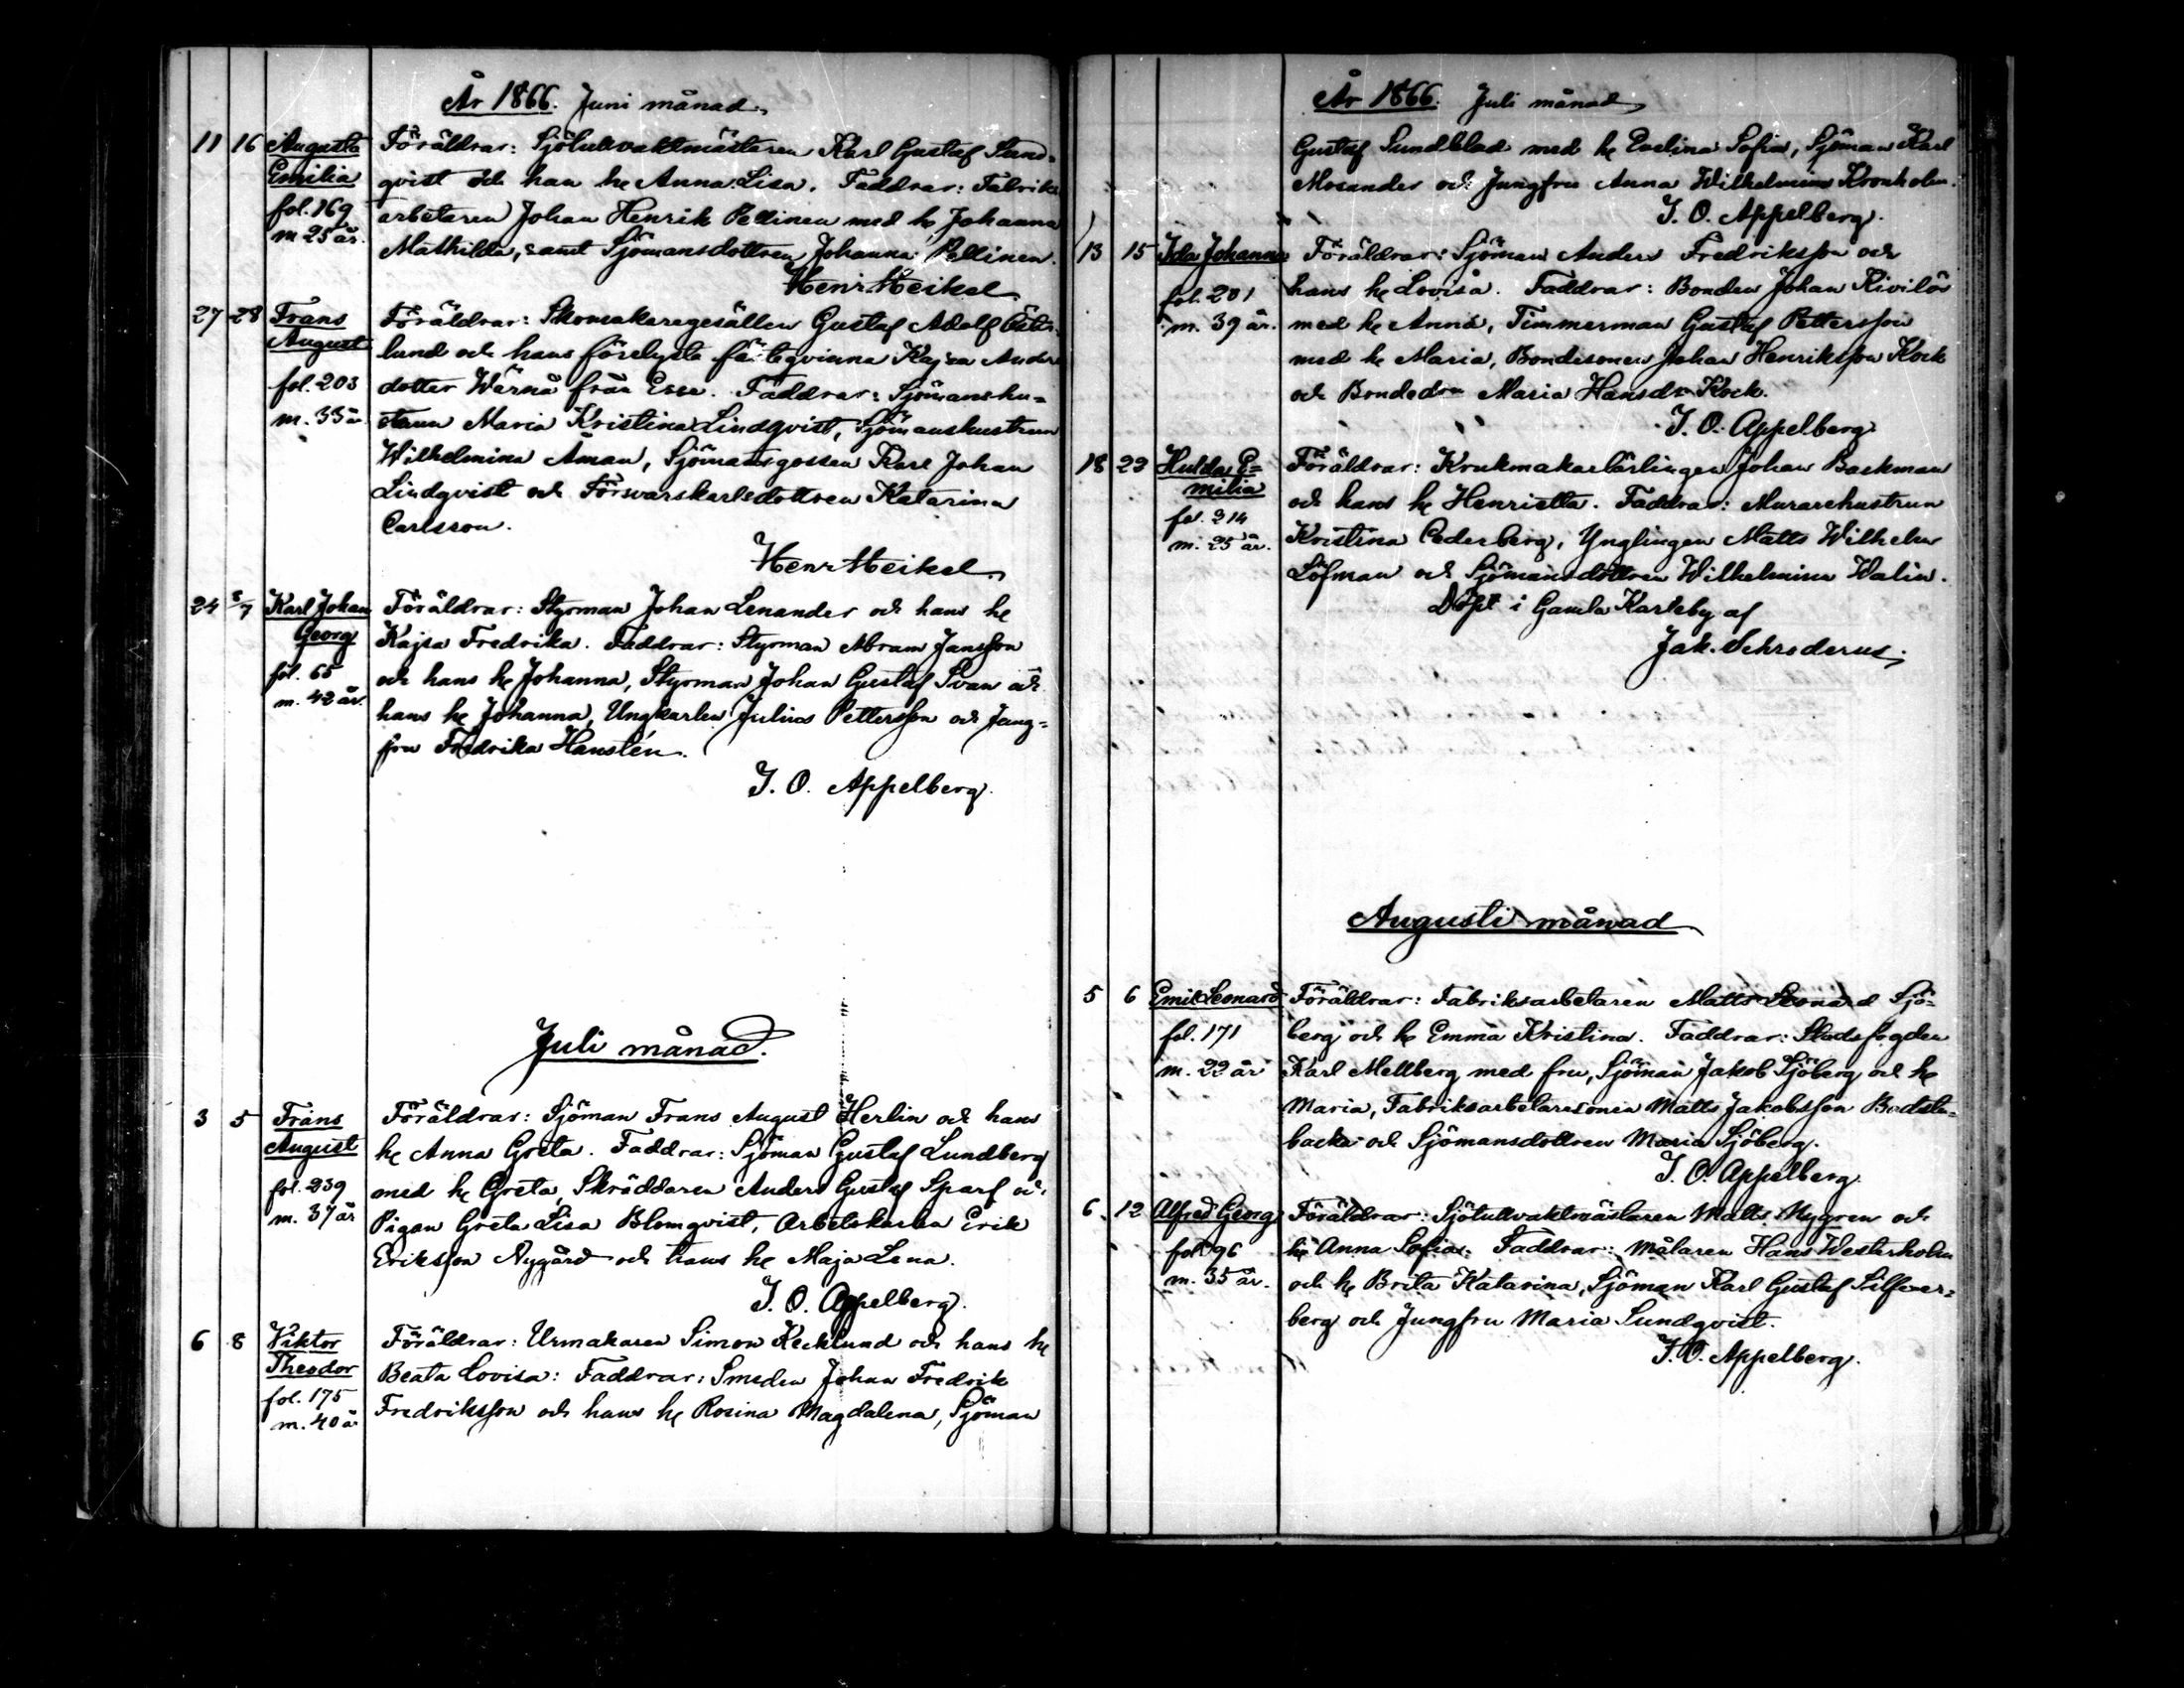 År 1866. Juni månad.
11 16 Augusta Föräldrar: Sjötullvaktmästaren Karl Gustaf Sund-
Emilia qvist och han he Anna Lisa. Faddrar: Fabriks
fol. 169 arbetaren Johan Henrik Pellinen med he Johanna
m 25 år. Mathilda, samt Sjömansdottren Johanna Pellinen.
Henr Heikel
27 28 Frans Föräldrar: Skomakaregesällen Gustaf Adolf Öster-
August lund och hans förelysta fästeqvinna Kajsa Anders
fol. 203 dotter Wärnå från Esse. Faddrar: Sjömanshu-
m. 33 år strun Maria Kristina Lindqvist, Sjömanshustrun
Wilhelmina Åman, Sjömansgossen Karl Johan
Lindqvist och Försvarskarlsdottren Katarina
Carlsson.
Henr Heikel
24 8/7 Karl Johan Föräldrar: Styrman Johan Lenander och hans he
Georg Kajsa Fredrika. Faddrar: Styrman Abram Jansson
fol. 65 och hans he Johanna, Styrman Johan Gustaf Svan och
m. 42 år. hans he Johanna, Ungkarlen Julius Pettersson och Jung-
fru Fredrika Hanstén.
J. O. Appelberg.
Juli månad.
3 5 Frans Föräldrar: Sjöman Frans August Herlin och hans
August he Anna Greta. Faddrar: Sjöman Gustaf Lundberg
fol. 239 med he Greta, Skräddaren Anders Gustaf Sparf och
m. 37 år Pigan Greta Lisa Blomqvist, Arbetskarlen Erik
Eriksson Nygård och hans he Maja Lena.
J. O. Appelberg.
6 8 Viktor Föräldrar: Urmakaren Simon Kecklund och hans he
Theodor Beata Lovisa: Faddrar: Smeden Johan Fredrik
fol. 175 Fredriksson och hans he Rosina Magdalena, Sjöman
m. 40 år
År 1866. Juli månad
Gustaf Sundblad med he Evelina Sofia, Sjöman Karl
Mosander och Jungfru Anna Wilhelmina Kronholm.
J. O. Appelberg.
13 15 Ida Johanna Föräldrar: Sjöman Anders Fredriksson och
fol. 201 hans he Lovisa. Faddrar: Bonden Johan Kivilös
m. 39 år. med he Anna, Timmerman Gustaf Pettersson
med he Maria, Bondesonen Johan Henriksson Kock
och Bondedr Maria Hansdr Kock.
J. O. Appelberg
18 22 Hulda E- Föräldrar: Krukmakarlärlingen Johan Backman
milia och hans he Henrietta. Faddrar: Murarehustrun
fol. 214 Kristina Cederberg, Ynglingen Matts Wilhelm
m. 25 år. Löfman och Sjömansdottren Wilhelmina Walin.
Döpt i Gamla Karleby af
Jak. Schroderus.
Augusti månad
5 6 Emil Leonard Föräldrar: Fabriksarbetaren Matts Leonard Sjö-
fol. 171 berg och he Emma Kristina. Faddrar: Stadsfogden
m. 22 år Karl Mellberg med fru, Sjöman Jakob Sjöberg och he
Maria, Fabriksarbetaresonen Matts Jakobsson
backa och Sjömansdottren Maria Sjöberg.
J. O. Appelberg.
6 12 Alfred Georg Föräldrar: Sjötullvaktmästaren Matts Nygren och
fol 96 he Anna Sofia. Faddrar: Målaren Hans Westerholm
m. 35 år. och he Brita Katarina, Sjöman Karl Gustaf Silfver-
berg och Jungfru Maria Sundqvist.
J. O. Appelberg.